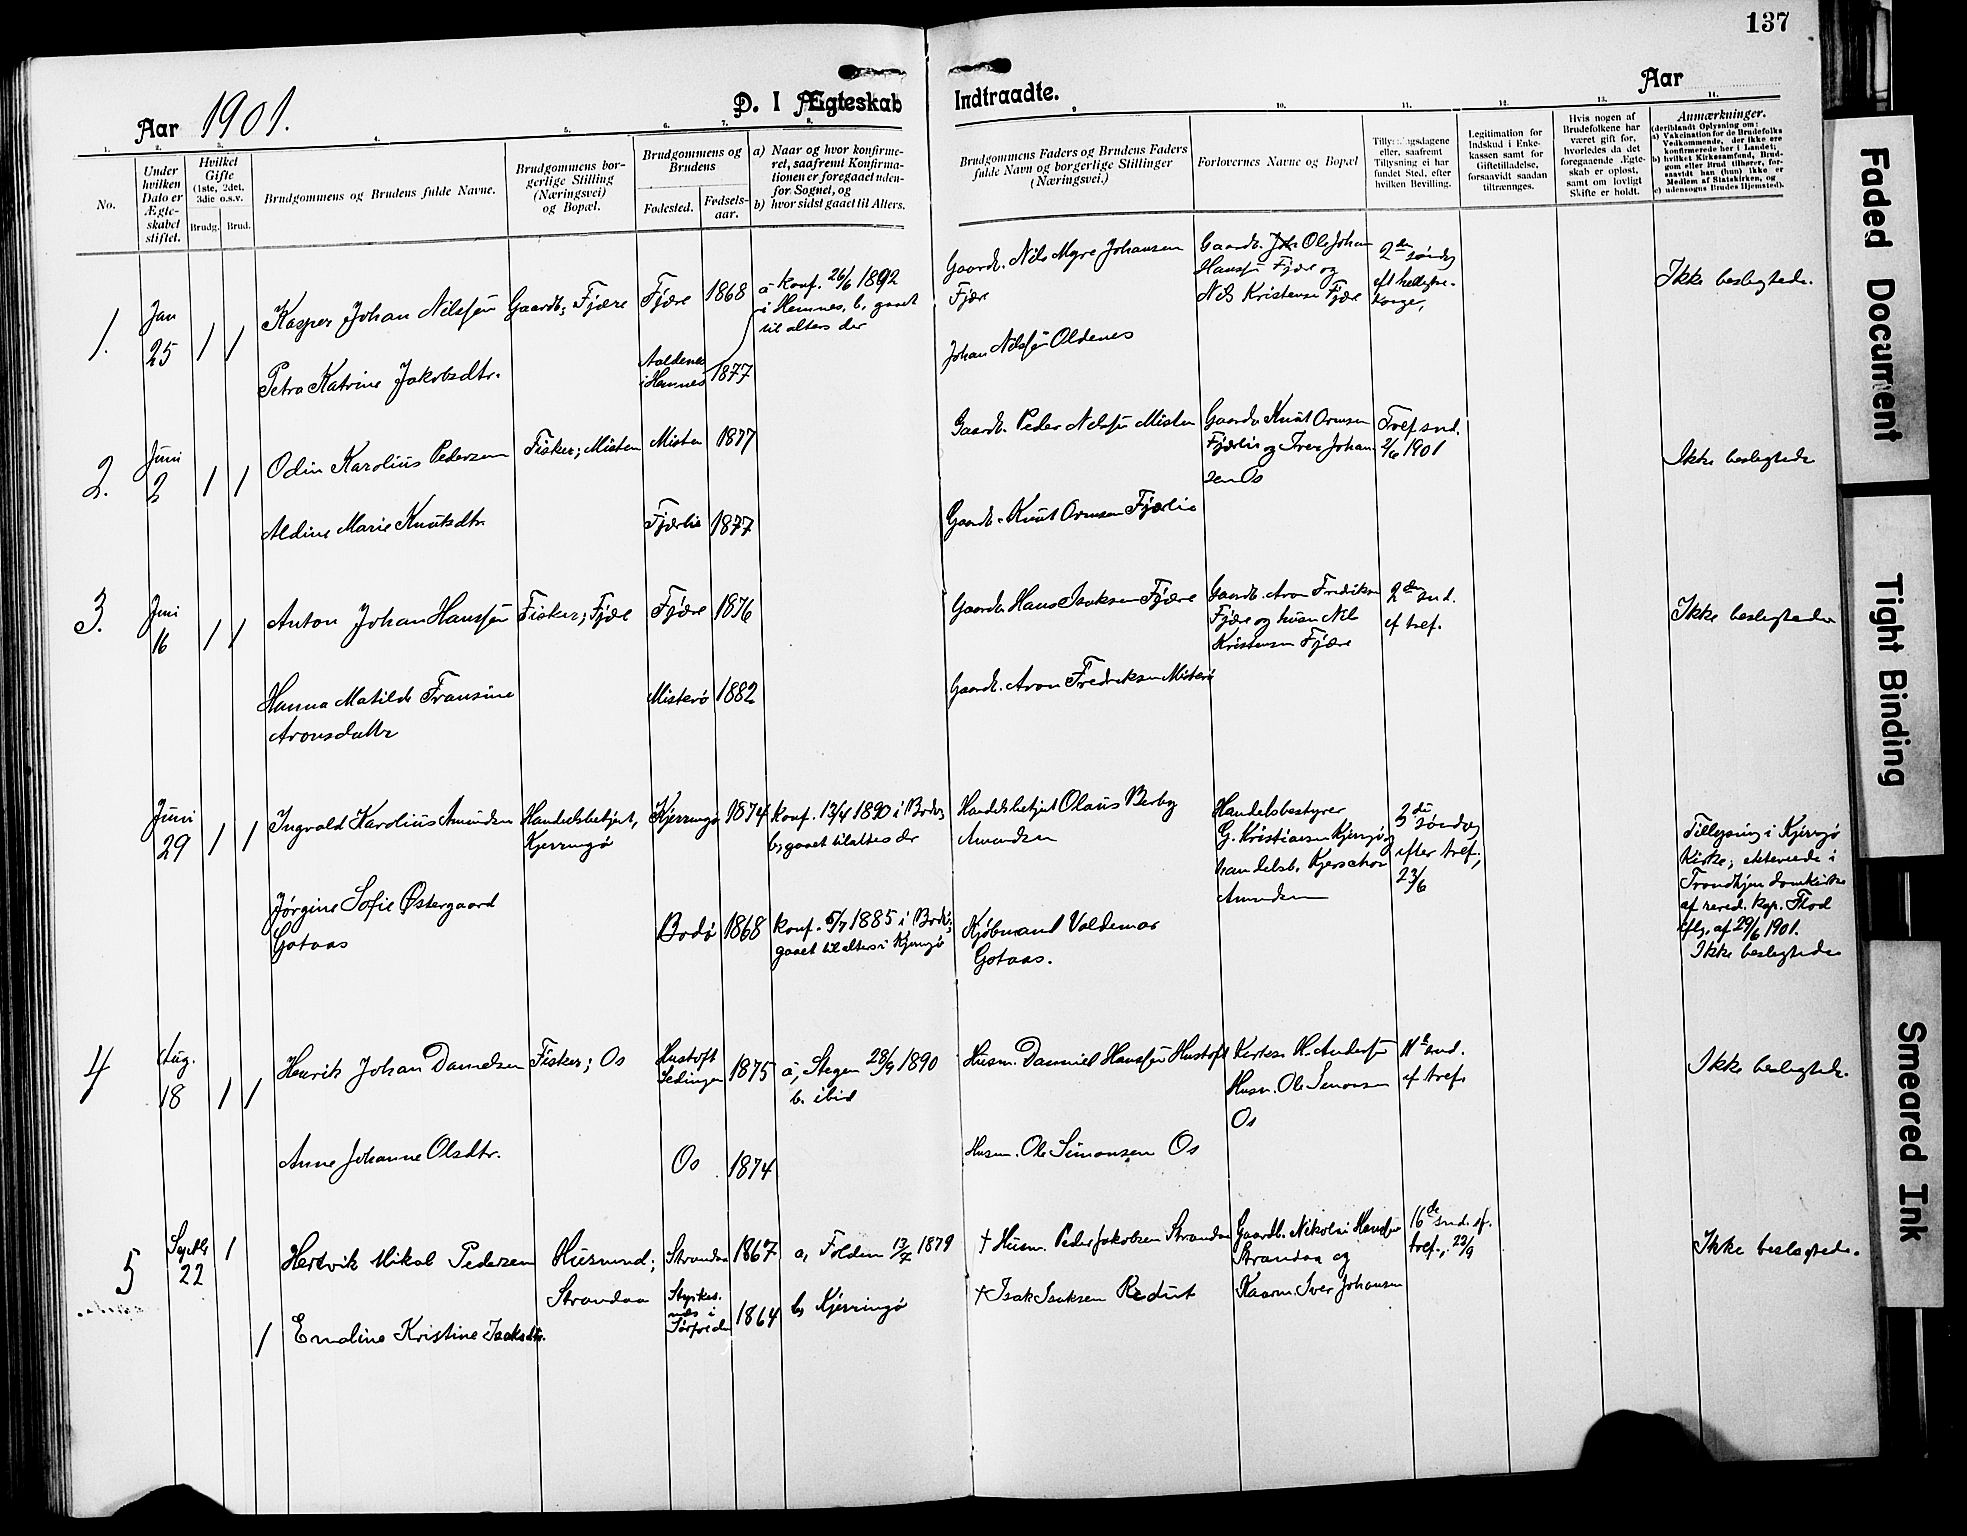 137
Aar 1901.
D. I Ægteskab Indtraadte.
Aar
1. 2. 3. 4. 5. 6. 7. 8. 9. 10. 11. 12. 13. 14.
No.
Under hvilken Dato er Ægte-skabet stiftet.
Hvilket Gifte (1ste, 2det, 3die o.s.v.
Brudg. Brud.
Brudgommens og Brudens fulde Navne.
Brudgommens bor-gerlige Stilling (Næringsvei) og Bopæl.
Brudgommens og Brudens
Fødested. Fødsels-aar.
a) Naar og hvor konfirme-ret, saafremt Konfirma-tionen er foregaaet uden-for Sognet, og
b) hvor sidst gaaet til Alters.
Brudgommens Faders og Brudens Faders fulde Navn og borgerlige Stillinger (Næringsvei.)
Forlovernes Navne og Bopæl
eller, saafremt Tillysning ei har fundet Sted, efter hvilken Bevilling.
Legitimation for Indskud i Enke-kassen samt for Giftetilladelse, forsaavidt saadan tiltrænges.
Hvis nogen af Brudefolkene har været gift før, hvorledes da det foregaaende Ægte-skab er opløst, samt om lovligt Skifte er holdt.
Anmærkninger.
(deriblandt Oplysning om:
a) Vakcination for de Brudefolks Vedkommende, der ikke ere konfirmerede her i Landet;
b) hvilket Kirkesamfund, Brud-gom eller Brud tilhører, for-saavidt han (hun) ikke er Medlem af Statskirken, og
c) udensogns Brudes Hjemsted).
1.
Jan 25
1 1
Kasper Johan Nilssøn
Gaardb; Fjære
Fjære 1868
a konf. 26/6 1892
i Hemnes, b, gaaet
til alters der
Gaardb. Nils Myre Johansen
Fjære
Gaardb. Ole Johan
Hanssøn Fjære og
Nils Kristensen Fjære
2den søndag
eft helligtre-
konger,
Ikke beslegtede.
Petra Katrine Jakobsdtr.
i Hemnes 1877
Johan Nilssøn Oldenes
2.
Juni 2
1 1
Odin Karolius Pedersen
Fisker; Misten
Misten 1877
Gaardb. Peder Nilssøn Misten
Gaardb Knut Ormsen
Fjærlie og Iver Johan
sen Os
Tref snd.
2/6 1901
Ikke beslegtede
Aldine Marie Knutsdtr.
Fjærlie 1877
Gaardb. Knut Ormsen Fjærlie
3.
Juni 16
1 1
Anton Johan Hanssøn
Fisker; Fjære
Fjære 1876
Gaardb. Hans Isaksen Fjære
Gaardb. Aron Fredriksen
Fjære og husm Nils
Kristensen Fjære
2den snd.
ef tref.
Ikke beslegtede
Hanna Matilde Fransine
Aronsdatter
Misterø 1882
Gaardb. Aron Fredriksen Misterø
Juni 29
1 1
Ingvald Karolius Amundsen
Handelsbetjent,
Kjerringø
Kjerringø 1874
konf. 13/4 1890 i Bodø,
b, gaaet til alters der
Handelsbetjent Olaus Berby
Amundsen
Handelsbestyrer
G. Kristiansen Kjerringø
handelsb. Kjerschow
Amundsen
3die søndag
efter tref.,
23/6
Tillysning i Kjerringø
Kirke; ektevede i
Trondhjem domkirke
af resid. kap. Flod
iflg. af 29/6 1901.
Ikke beslegtede
Jørgine Sofie Østergaard
Gotaas
Bodø 1868
konf. 5/7 1885 i Bodø;
gaaet til alters i Kjerringø
Kjøbmand Valdemar
Gotaas.
4
Aug. 18
1 1
Henrik Johan Danielsen
Fisker; Os
Hustoft
Ledingen 1875
a, Stegen 28/9 1890
b. ibid
Husm. Danniel Hanssøn Hustoft
Kirkes. H. Anderssøn
Husm. Ole Simonsen
Os
11te snd.
ef tref.
Ikke beslegtede.
Anne Johanne Olsdtr.
Os 1874
Husm. Ole Simonsen Os
5
Septbr 22
1
Hertvik Mikal Pedersen
Husmand;
Strandaa
Strandaa 1867
a, Folden 13/7 1879
† Husm. Peder Jakobsen Strandaa
Gaardb. Nikolai Hansen
Strandaa og
Kaarm. Iver Johansen
16de snd. ef.
tref., 22/9
Ikke beslegtede.
1
Emeline Kristine Isaksdtr.
Styrkes-
næs i
Sørfolden 1864
b, Kjerringø
† Isak Isaksen Rødnt
Faded Document
Tight Binding
Smeared Ink